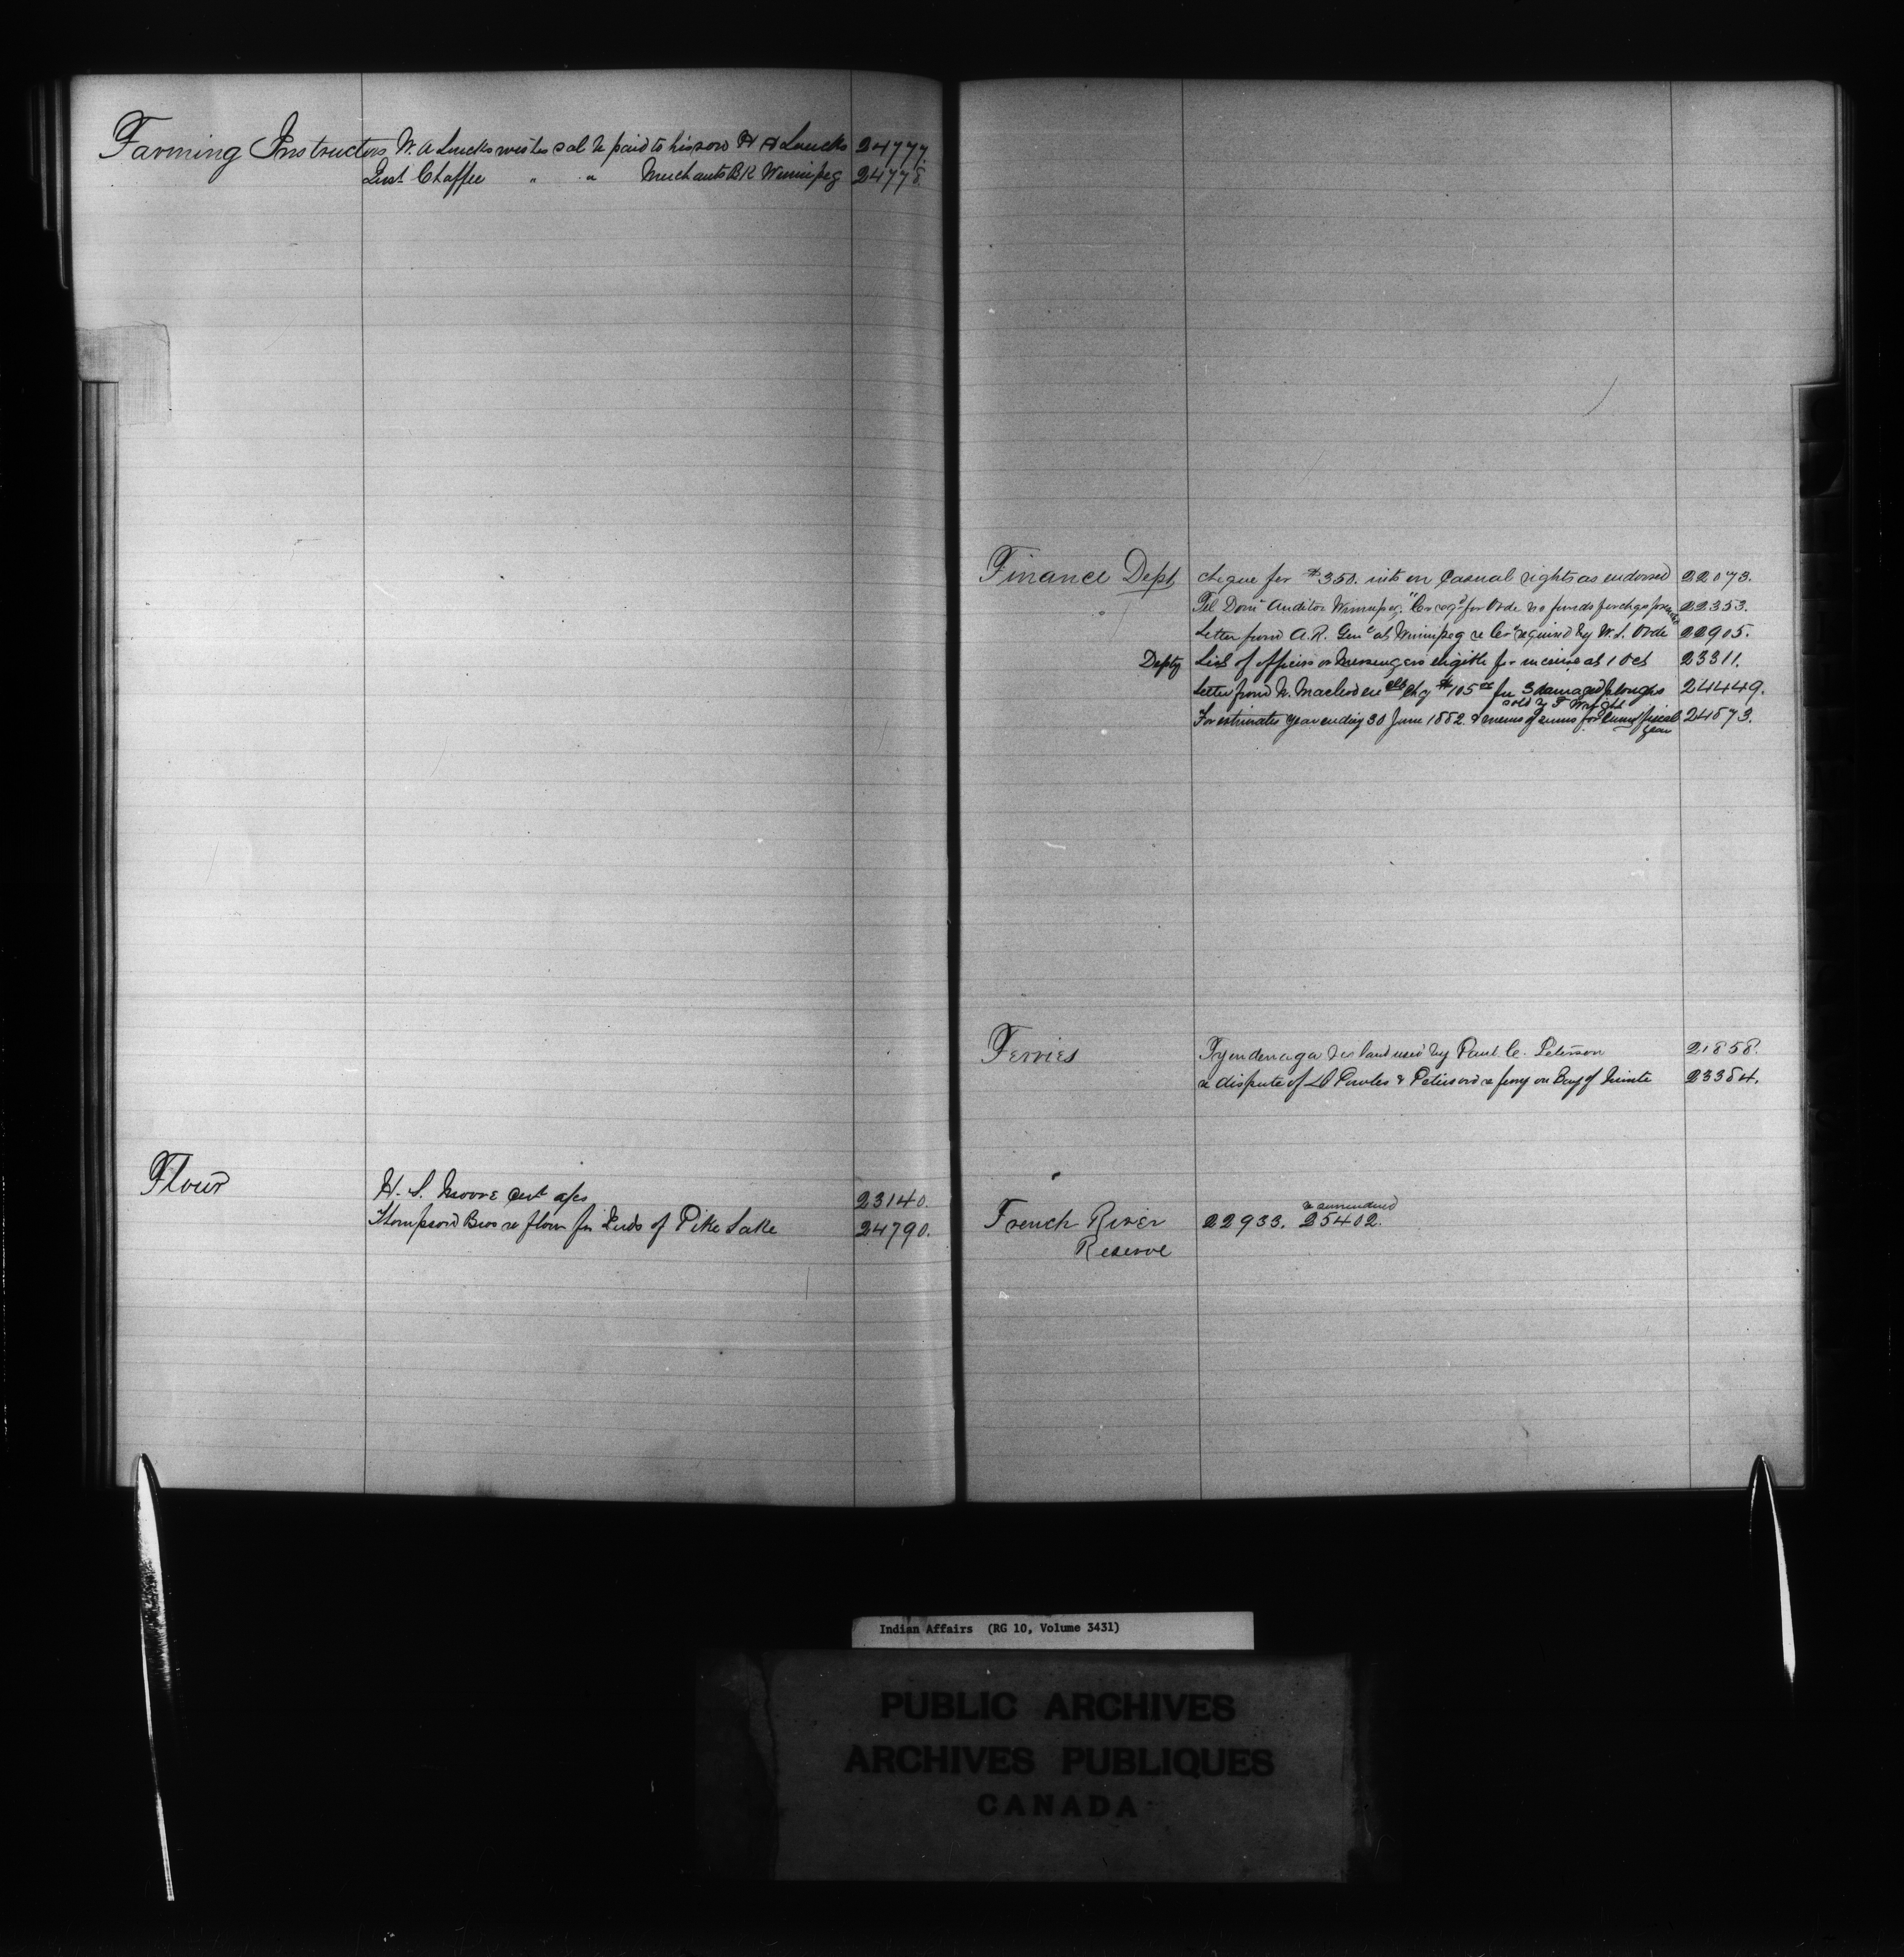 Farming Instructors W. A Loucks wishes sal to paid to his son H A Loucks 24777.
Inst Chaffee " " Merchants BK Winnipeg 24778.
Flour
H. S. Moore a/cs 23140.
Thompson Bros re flour for Inds of Pike Lake 24790.
Finance Dept cheque for $350. ints on Casual rights as endorsed 22073.
Tel Domn Auditor Winnipeg. "Cr reqd for Orde no funds for chqs 22353.
Letter from A.R. Genl at Winnipeg re Cr required by W. L. Orde 22905.
Depty List of officers or Messengers eligible for increase at 1 Oct 23311.
Letter from N. Macleod enclg Chq $105 for 3 damaged ploughs 24449.
sold by T Wright
For estimates year ending 30 June 1882 & memo of sums for fiscal 24573.
year
Ferries
Tyendenaga land used by Paul C. Peterson 21858.
re dispute of Powles & Peterson re ferry on Bay of Quinte 23384.
re surrendered
French River 22933. 25402.
Reserve
Indian Affairs (RG 10, Volume 3431)
PUBLIC ARCHIVES
ARCHIVES PUBLIQUES
CANADA